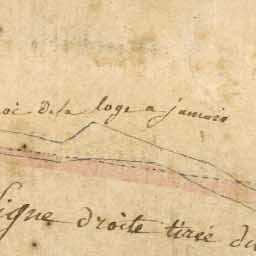 roc de la loge a jamais
ligne droite tirée du